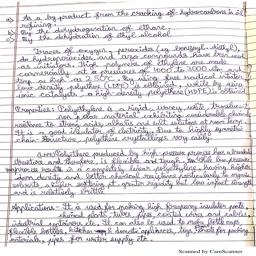 a) As a by product from the cracking of hydrocarbons in oil
refining.
b) By the dehydrogenation of ethane.
c) By the dehydration of ethyl alcohol
Traces of oxygen, peroxides (eg benzoyl, diethyl),
hydroperoxides, and azo compounds have been used
as initiators. High polymers of ethylene are made
commercially at a pressures of 1000 to 3000 atm
as high as 250°C. By using free radical initiator
low density polyethene (LDPE) is obtained, while by using
ionic catalysts, a high density polyethene (HDPE) is obtained
Properties: Polyethylene is a rigid, waxy white translucent
non polar material exhibiting considerable chemical
resistance to strong acids, alkalis and salt solutions at room temp.
It is a good insulator of electricity. Due to highly symmetric
chain structure, polyethene crystallizes very easily.
A polyethylene produced by high-pressure process has a branched
structure and therefore is flexible and tough, low pressure
process results in a completely linear polyethylene having higher
density and better chemical resistance particularly to organic
solvents, a higher softening pt, greater rigidity but low impact strength
and is relatively brittle
Applications: It is used for making high frequency insulator parts,
chemical plants, tubes, pipes, coated wires and cables,
industrial containers etc. It can also be used to make bottle caps,
flexible bottles, kitchen and domestic appliances, bags for packing
materials, pipes for water supply etc.
Scanned by CamScanner